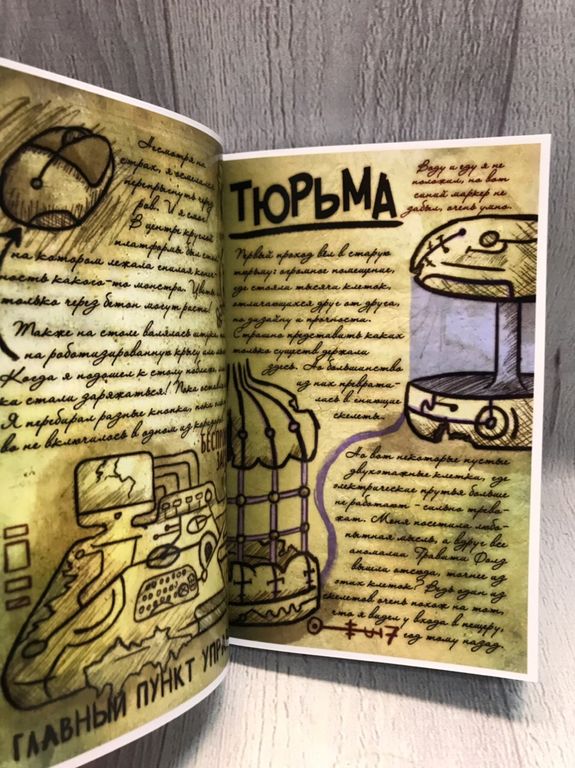 Несмотря на
страх, я
перепрыгнуть через
ров. У я смог!
В центре круглой
платформы был стол,
на котором лежала спалая
ность какого-то монстра. Цветы
только через бетон могут расти!
Также на столе валялась
на роботизированную крысу
Когда я подошел к столу
ка стали заряжаться! Пока
Я перебирал разные кнопки, пока
во не включилось в одном из
ГЛАВНЫЙ ПУНКТ
ТЮРЬМА
Воду и еду я не
положил, но вот
синий маркер не
забыл, очень умно.
Первый проход вел в старую
тюрьму: огромное помещение,
где стояли тысячи клеток,
отличающихся друг от друга,
по дизайну и прочности.
Страшно представить каких
только существ держали
здесь. Но большинство
из них преврати-
лись в гниющие
скелеты.
Но вот некоторые пустые
двухэтажные клетки, где
электрические прутья больше
не работают - сильно трево-
жат. Меня посетила любо-
пытная мысль, а вдруг все
аномалии Гравити Фолз
вышли отсюда, точнее из
этих клеток? Ведь один из
скелетов очень похож на тот,
что я видел у входа в пещеру,
год тому назад.